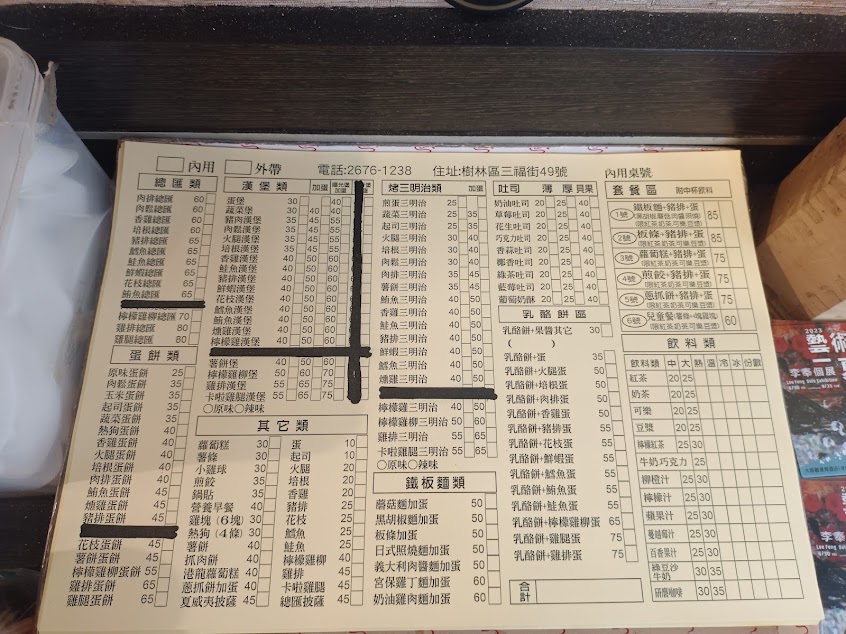 內用 外帶 電話:2676-1238 住址:樹林區三福街49號 內用桌號
總匯類
肉排總匯 60
肉鬆總匯 60
香雞總匯 60
培根總匯 60
豬排總匯 65
鱈魚總匯 65
鮭魚總匯 65
鮮蝦總匯 65
花枝總匯 65
鮪魚總匯 65
檸檬雞柳總匯 70
雞排總匯 80
雞腿總匯 80
蛋餅類
原味蛋餅 25
肉鬆蛋餅 35
玉米蛋餅 35
起司蛋餅 35
蔬菜蛋餅 35
熱狗蛋餅 40
香雞蛋餅 40
火腿蛋餅 40
培根蛋餅 40
肉排蛋餅 40
鮪魚蛋餅 45
燻雞蛋餅 45
豬排蛋餅 45
花枝蛋餅 45
薯餅蛋餅 45
檸檬雞柳蛋餅 55
雞排蛋餅 65
雞腿蛋餅 65
漢堡類 加蛋
蛋堡 30
蔬菜漢堡 30 40 40
豬肉漢堡 35 45 55
肉鬆漢堡 35 45 55
火腿漢堡 35 45 55
培根漢堡 35 45 55
香雞漢堡 40 50 60
鮭魚漢堡 40 50 60
豬排漢堡 40 50 60
鮮蝦漢堡 40 50 60
花枝漢堡 40 50 60
鱈魚漢堡 40 50 60
鮪魚漢堡 40 50 60
燻雞漢堡 40 50 60
檸檬雞漢堡 40 50 60
薯餅堡 40 50 60
檸檬雞柳堡 50 60 70
雞排漢堡 55 65 75
卡啦雞腿漢堡 55 65 75
○原味○辣味
其它類
蘿蔔糕 30
薯條 30
小雞球 30
煎餃 35
鍋貼 35
營養早餐 40
雞塊(6塊) 30
熱狗(4條) 30
薯餅 30
抓肉餅 40
港龍蘿蔔糕 40
蔥抓餅加蛋 40
夏威夷披薩 45
蛋 10
起司 10
火腿 20
培根 20
香雞 20
豬排 25
花枝 25
鱈魚 25
鮭魚 25
檸檬雞柳 40
雞排 45
卡啦雞腿 45
總匯披薩 45
烤三明治類 加蛋
煎蛋三明治 25
蔬菜三明治 25 35
起司三明治 25 35
火腿三明治 30 40
培根三明治 30 40
肉鬆三明治 30 40
肉排三明治 35 45
薯餅三明治 35 45
鮪魚三明治 40 50
香雞三明治 40 50
鮭魚三明治 40 50
豬排三明治 40 50
鮮蝦三明治 40 50
鱈魚三明治 40 50
燻雞三明治 40 50
檸檬雞三明治 40 50
檸檬雞柳三明治 50 60
雞排三明治 55 65
卡啦雞三明治 55 65
○原味○辣味
鐵板麵類
蘑菇麵加蛋 50
黑胡椒麵加蛋 50
板條加蛋 50
日式照燒麵加蛋 50
義大利肉醬麵加蛋 50
宮保雞丁麵加蛋 60
奶油雞肉麵加蛋 60
吐司 薄 厚 貝果
奶油吐司 20 25 40
草莓吐司 20 25 40
花生吐司 20 25 40
巧克力吐司 20 25 40
香蒜吐司 20 25 40
椰香吐司 20 25 40
綠茶吐司 20 25 40
藍莓吐司 20 25 40
葡萄奶酥 20 25 40
乳酪餅區
乳酪餅+果醬其它 30
( )
乳酪餅+蛋 35
乳酪餅+火腿蛋 50
乳酪餅+培根蛋 50
乳酪餅+肉排蛋 50
乳酪餅+香雞蛋 50
乳酪餅+豬排蛋 55
乳酪餅+花枝蛋 55
乳酪餅+鮮蝦蛋 55
乳酪餅+鱈魚蛋 55
乳酪餅+鮪魚蛋 55
乳酪餅+鮭魚蛋 55
乳酪餅+檸檬雞柳蛋 65
乳酪餅+雞腿蛋 75
乳酪餅+雞排蛋 75
合計
套餐區 附中杯飲料
1號 鐵板麵+豬排+蛋 85
2號 板條+豬排+蛋 85
(限紅茶奶茶可樂豆漿)
3號 蘿蔔糕+豬排+蛋 75
(限紅茶奶茶可樂豆漿)
4號 煎餃+豬排+蛋 75
(限紅茶奶茶可樂豆漿)
5號 蔥抓餅+豬排+蛋 75
(限紅茶奶茶可樂豆漿)
6號 兒童餐(薯條+塊雞塊) 60
(限紅茶奶茶可樂豆漿)
飲料類
飲料類 中 大 熱 溫 冷 冰 份數
紅茶 20 25
奶茶 20 25
可樂 20 25
豆漿 20 25
檸檬紅茶 25 30
牛奶巧克力 25
柳橙汁 25 30
檸檬汁 25 30
蘋果汁 25 30
蔓越莓汁 25 30
百香果汁 25 30
綠豆沙牛奶 30 35
研磨咖啡 30 35
2023
藝術
李奉個展